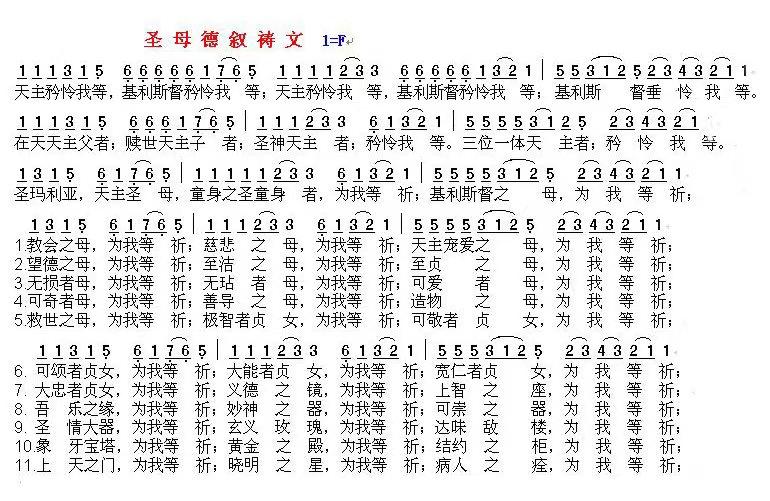 圣母德叙祷文 1=F
1 1 1 3 1 5 6 6 6 6 6 1 7 6 5 1 1 1 1 2 3 3 6 6 6 6 6 1 3 2 1 | 5 5 3 1 2 5 2 3 4 3 2 1 1 |
天主矜怜我等，基利斯督矜怜我 等；天主矜怜我 等，基利斯督矜怜我 等；基利斯 督垂 怜 我 等。
1 1 1 3 1 5 6 6 6 1 7 6 5 1 1 1 2 3 3 6 1 3 2 1 | 5 5 5 5 3 1 2 5 2 3 4 3 2 1 1 |
在天天主父者；赎世天主子 者；圣神天主 者；矜怜我 等。三位一体天 主者；矜 怜 我 等。
圣玛利亚，天主圣 母，童身之圣童身 者，为我等 祈；基利斯督之 母，为 我 等 祈；
1.教会之母，为我等 祈；慈悲 之 母，为我等 祈；天主宠爱之 母，为 我 等 祈；
2.望德之母，为我等 祈；至洁 之 母，为我等 祈；至贞 之 母，为 我 等 祈；
3.无损者母，为我等 祈；无玷 者 母，为我等 祈；可爱 者 母，为 我 等 祈；
4.可奇者母，为我等 祈；善导 之 母，为我等 祈；造物 之 母，为 我 等 祈；
5.救世之母，为我等 祈；极智者贞 女，为我等 祈；可敬者 贞 女，为 我 等 祈；
6. 可颂者贞女，为我等 祈；大能者贞 女，为我等 祈；宽仁者贞 女，为 我 等 祈；
7. 大忠者贞女，为我等 祈；义德 之 镜，为我等 祈；上智 之 座，为 我 等 祈；
8. 吾 乐之缘，为我等 祈；妙神 之 器，为我等 祈；可崇 之 器，为 我 等 祈；
9. 圣 情大器，为我等 祈；玄义 玫 瑰，为我等 祈；达味 敌 楼，为 我 等 祈；
10.象 牙宝塔，为我等 祈；黄金 之 殿，为我等 祈；结约 之 柜，为 我 等 祈；
11.上 天之门，为我等 祈；晓明 之 星，为我等 祈；病人 之 痊，为 我 等 祈；